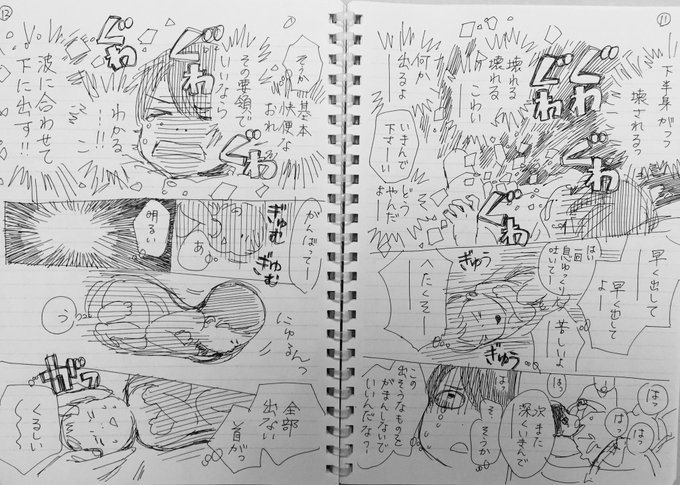 ⑪
―下半身がっっ
壊されるっ
ぐわ
ぐわ
ぐわ
壊れる
壊れる
こわい
何か
出るよ
―――
いきんで
下さーい
どう
やんだ
よ―
早く出して
―
早く出して
よ―
はい
一回
息ゆっくり
吐いてー
苦しいよ
―
へたくそ―
ぎゅう
ぎゅう
はっ
はっ
はっ
はっ
次また
深くいきんで
はっ
そ、そうか
この
出そうなものを
がまんしないで
いいんだな?
⑫
そうか
基本
快便な
おれ
その要領で
いいなら
―
わかる
―!!
波に合わせて
下に出す!!
ぐわ
ぐわ
ぐわ
がんばってー
ぎゅむ
ぎゅむ
あ
明るい
にゅるんっ
う
全部
出ない
首がっ
くるしい
～